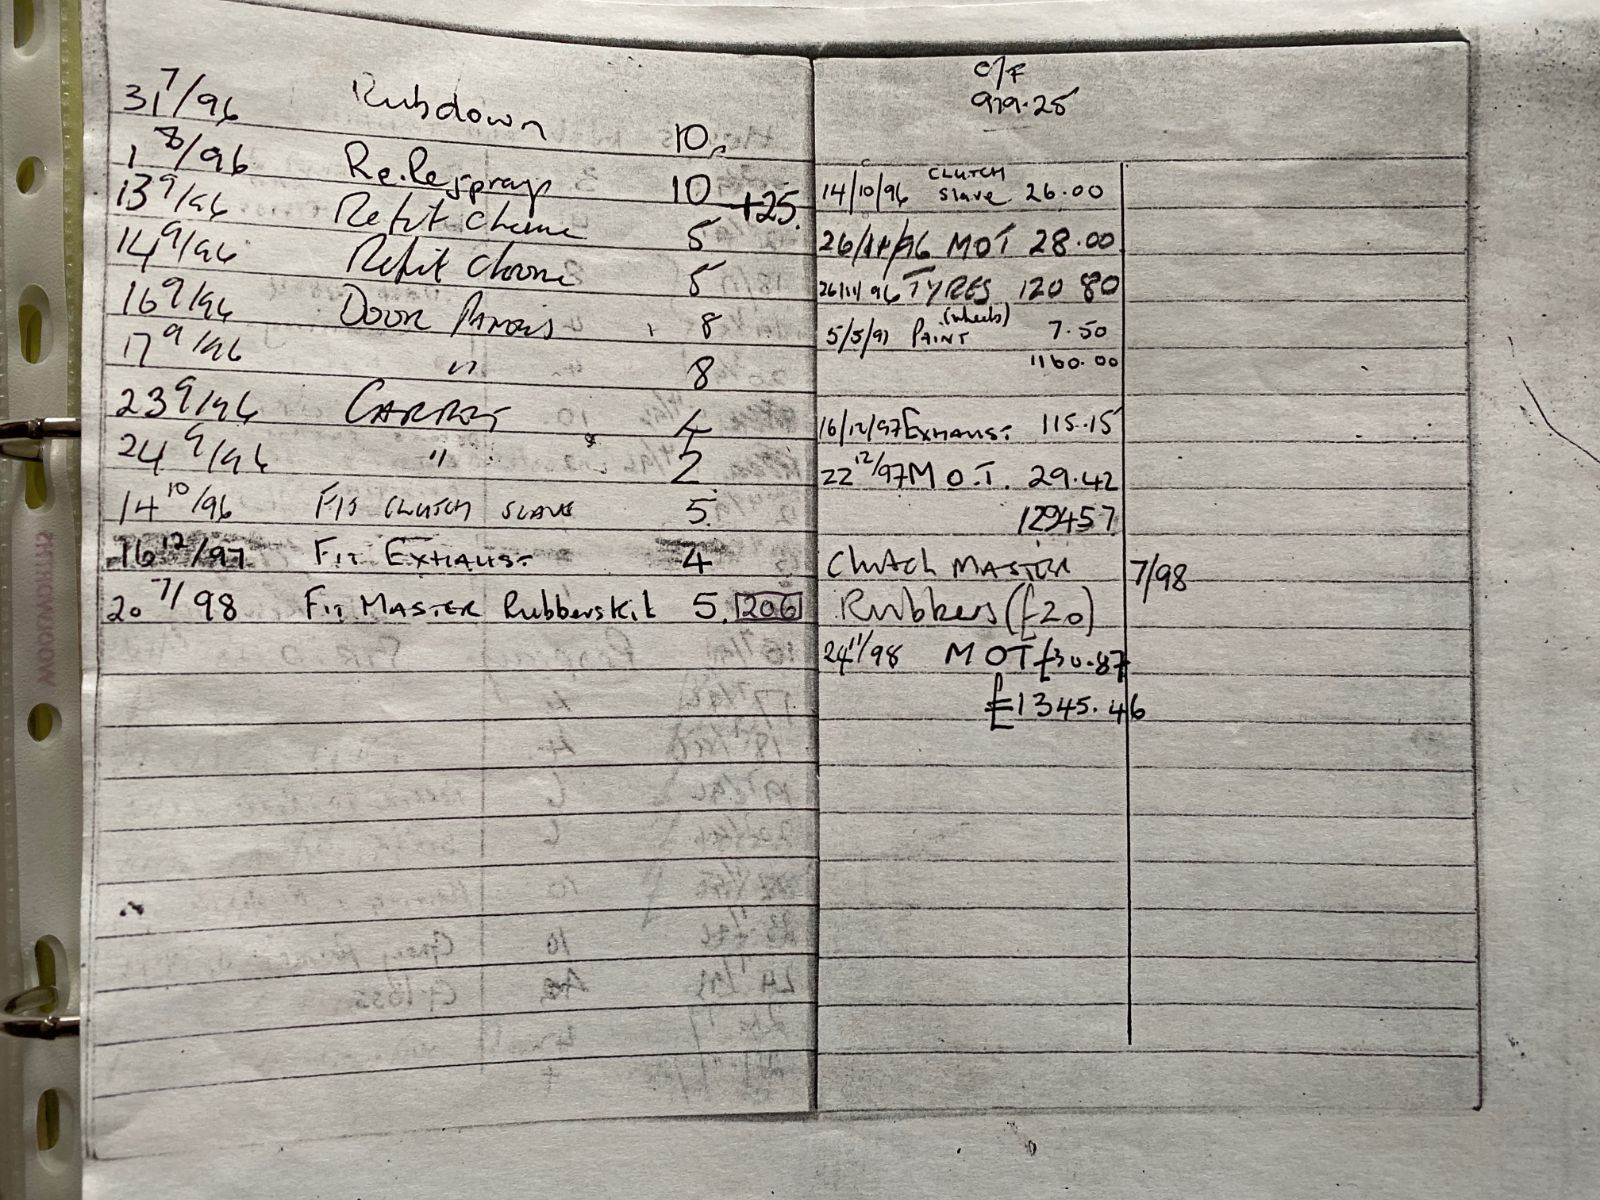 31 7/96 Rubdown 10
1 8/96 Re.Respray 10 +25
13 9/96 Refit Chrome 5
14 9/96 Refit Chrome 5
16 9/96 DOOR PANELS 8
17 9/96 " 8
23 9/96 CARPET 4
24 9/96 " 2
14 10/96 FIT CLUTCH SLAVE 5
16 12/97 FIT EXHAUST 4
20 7/98 FIT MASTER Rubbers Kit 5. 206
C/F
979.25
CLUTCH
14/10/96 Slave 26.00
26/11/96 MOT 28.00
26/11/96 TYRES 120 80
(wheels)
5/5/97 PAINT 7.50
1160.00
16/12/97 EXHAUST 115.15
22 12/97 M O.T. 29.42
129457
Clutch MASTER 7/98
Rubbers (£20)
24 11/98 MOT £30.87
£1345.46